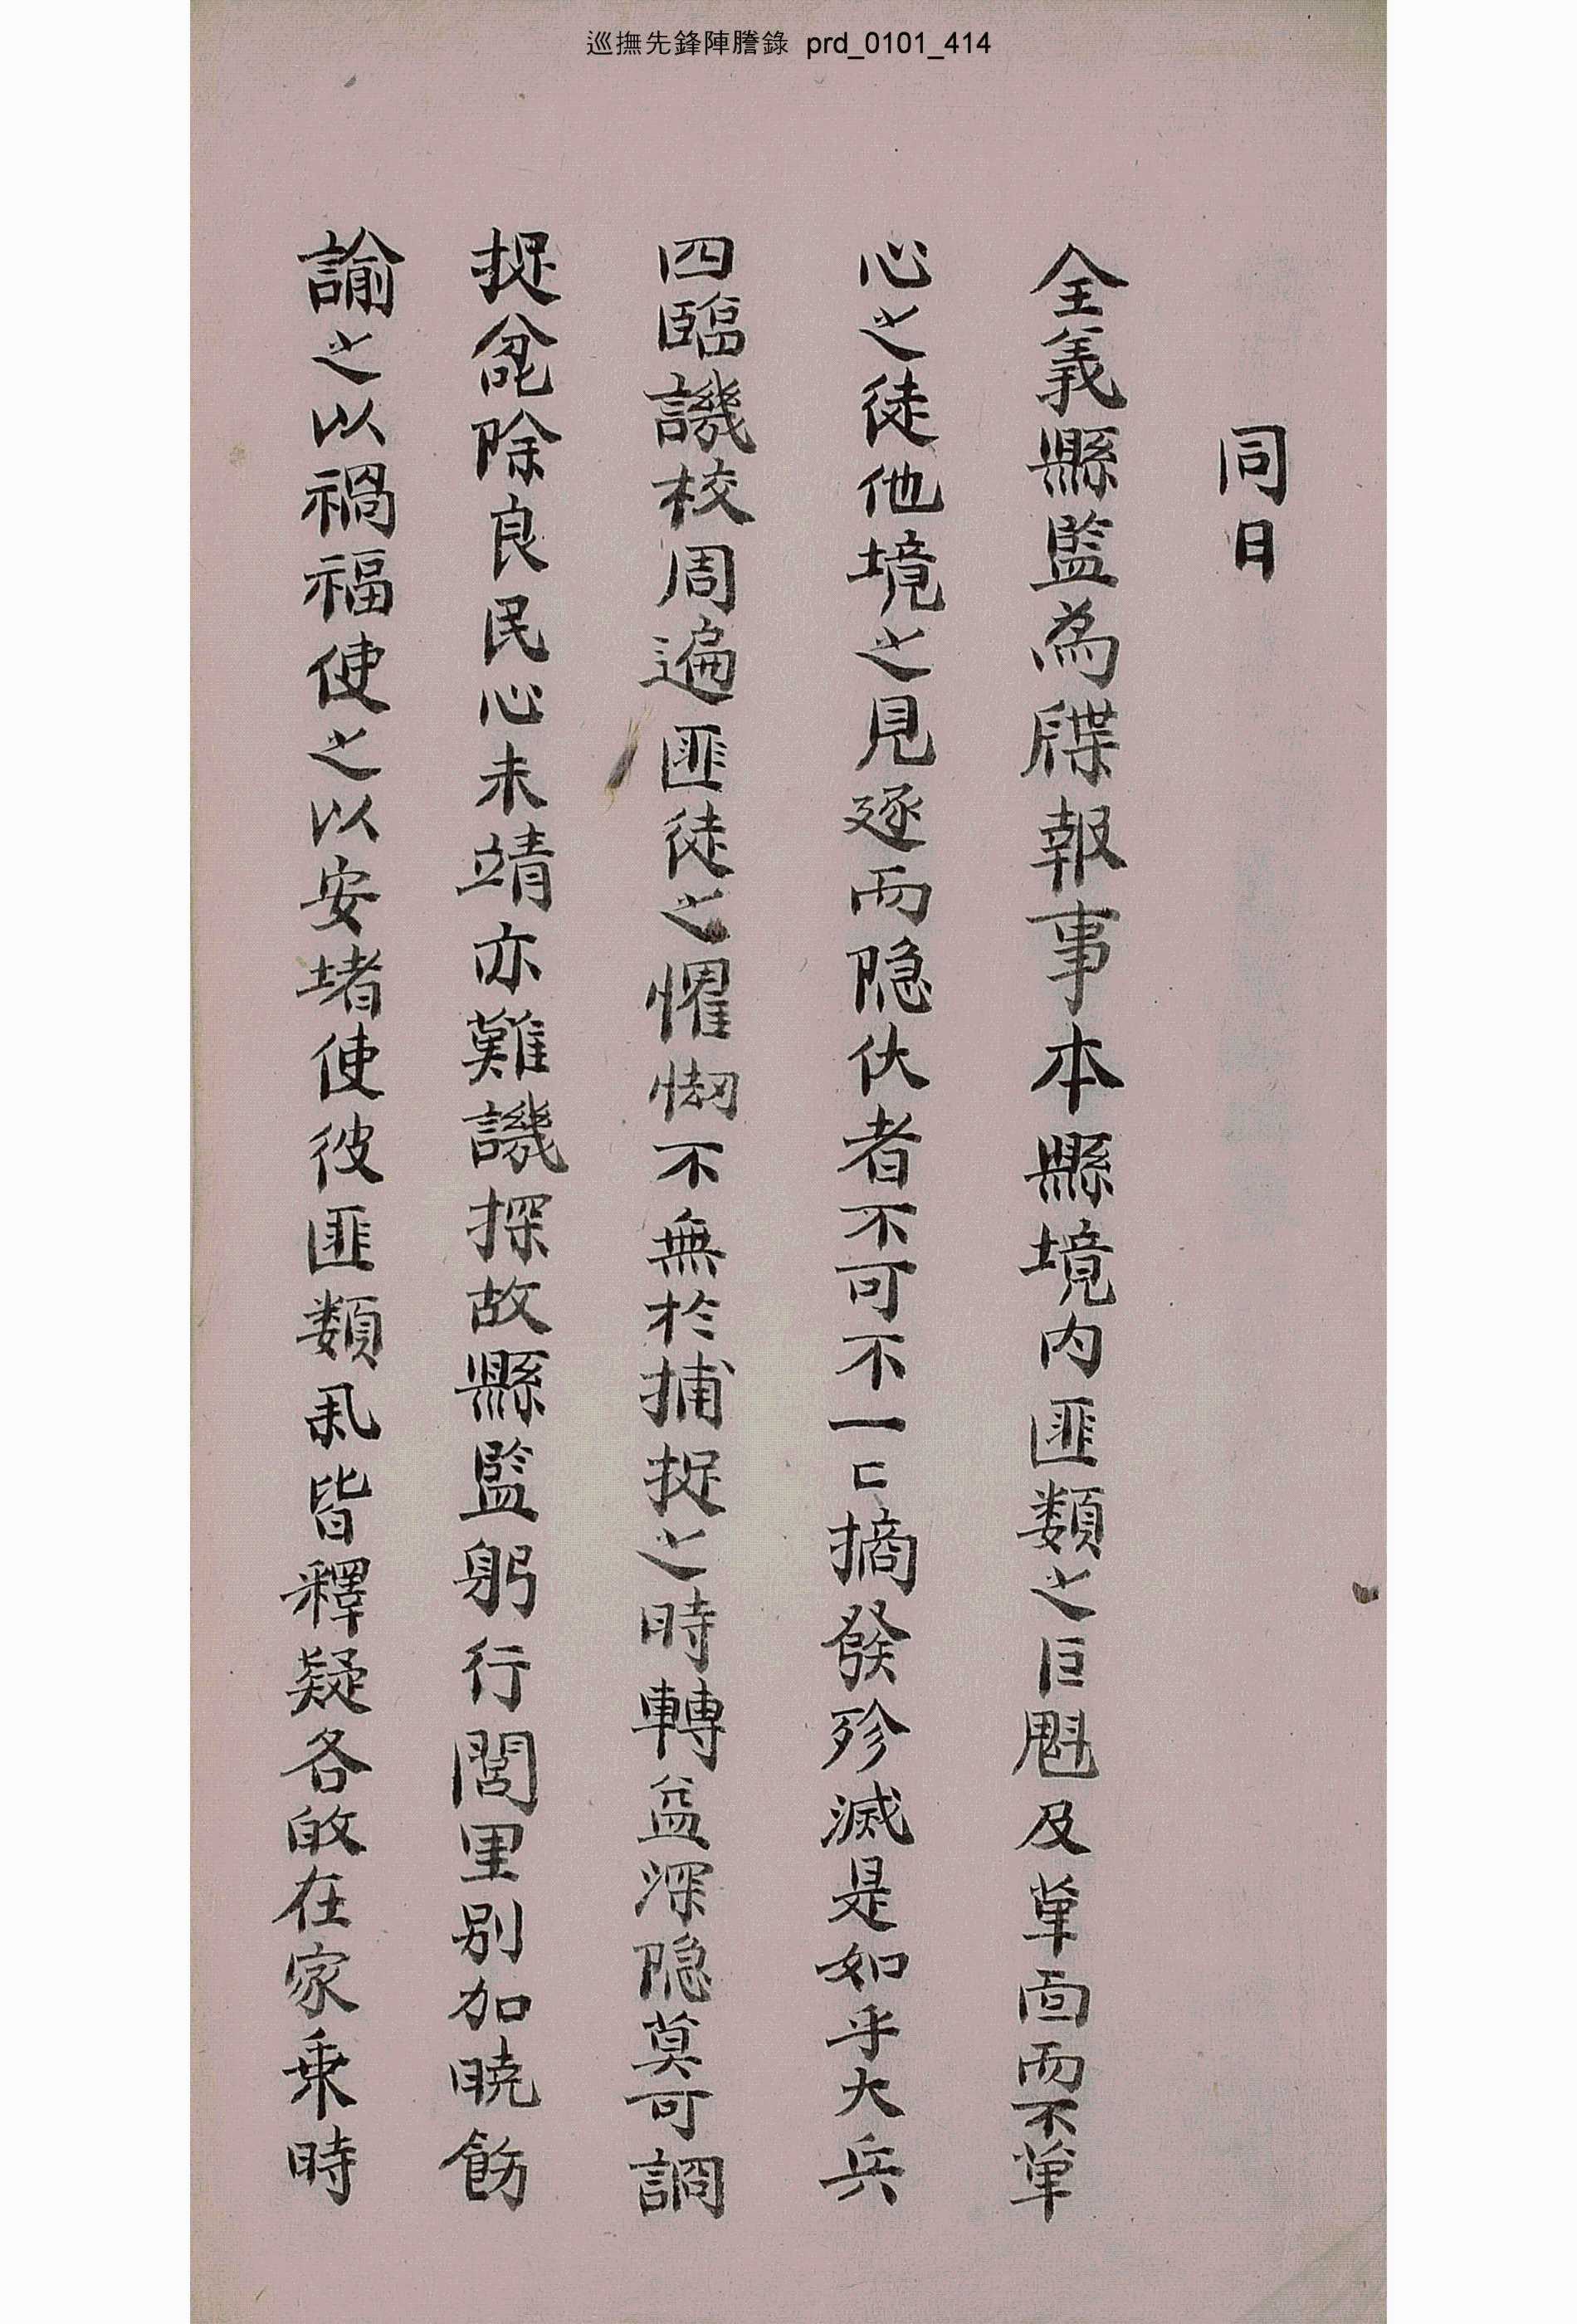 巡撫先鋒陣謄錄 prd_0101_414
同日
全義縣監為牒報事本縣境內匪類之巨魁及革面而不革
心之徒他境之見逐而隐伏者不可不一〻摘發殄滅是如乎大兵
四臨譏校周遍匪徒之懼㥘不無於捕捉之時轉益深隐莫可調
捉叱除良民心未靖亦難譏探故縣監躬行閭里別加曉飭
諭之以禍福使之以安堵使彼匪類亂皆釋疑各的在家乗時